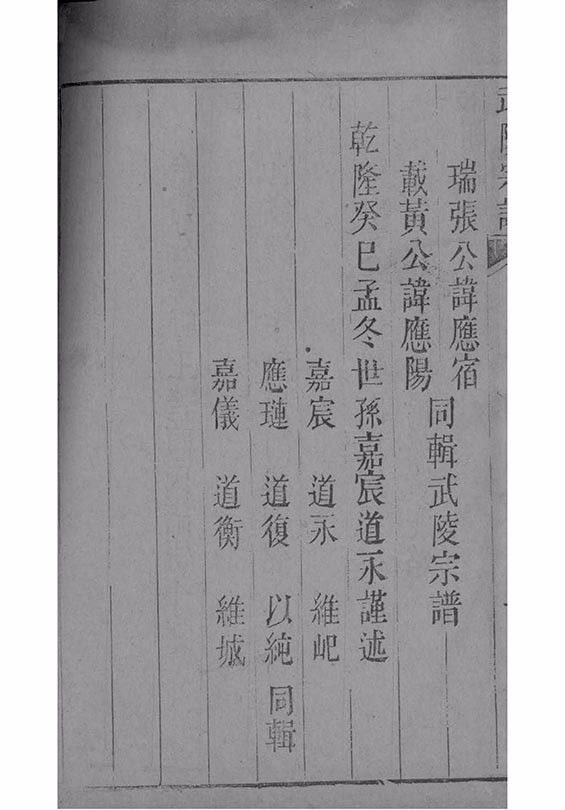 武陵宗譜
瑞張公諱應宿
載黃公諱應陽
同輯武陵宗譜
乾隆癸巳孟冬世孫嘉宸道永謹述
嘉宸 道永 維屺
應璉 道復 以純 同輯
嘉儀 道衡 維城